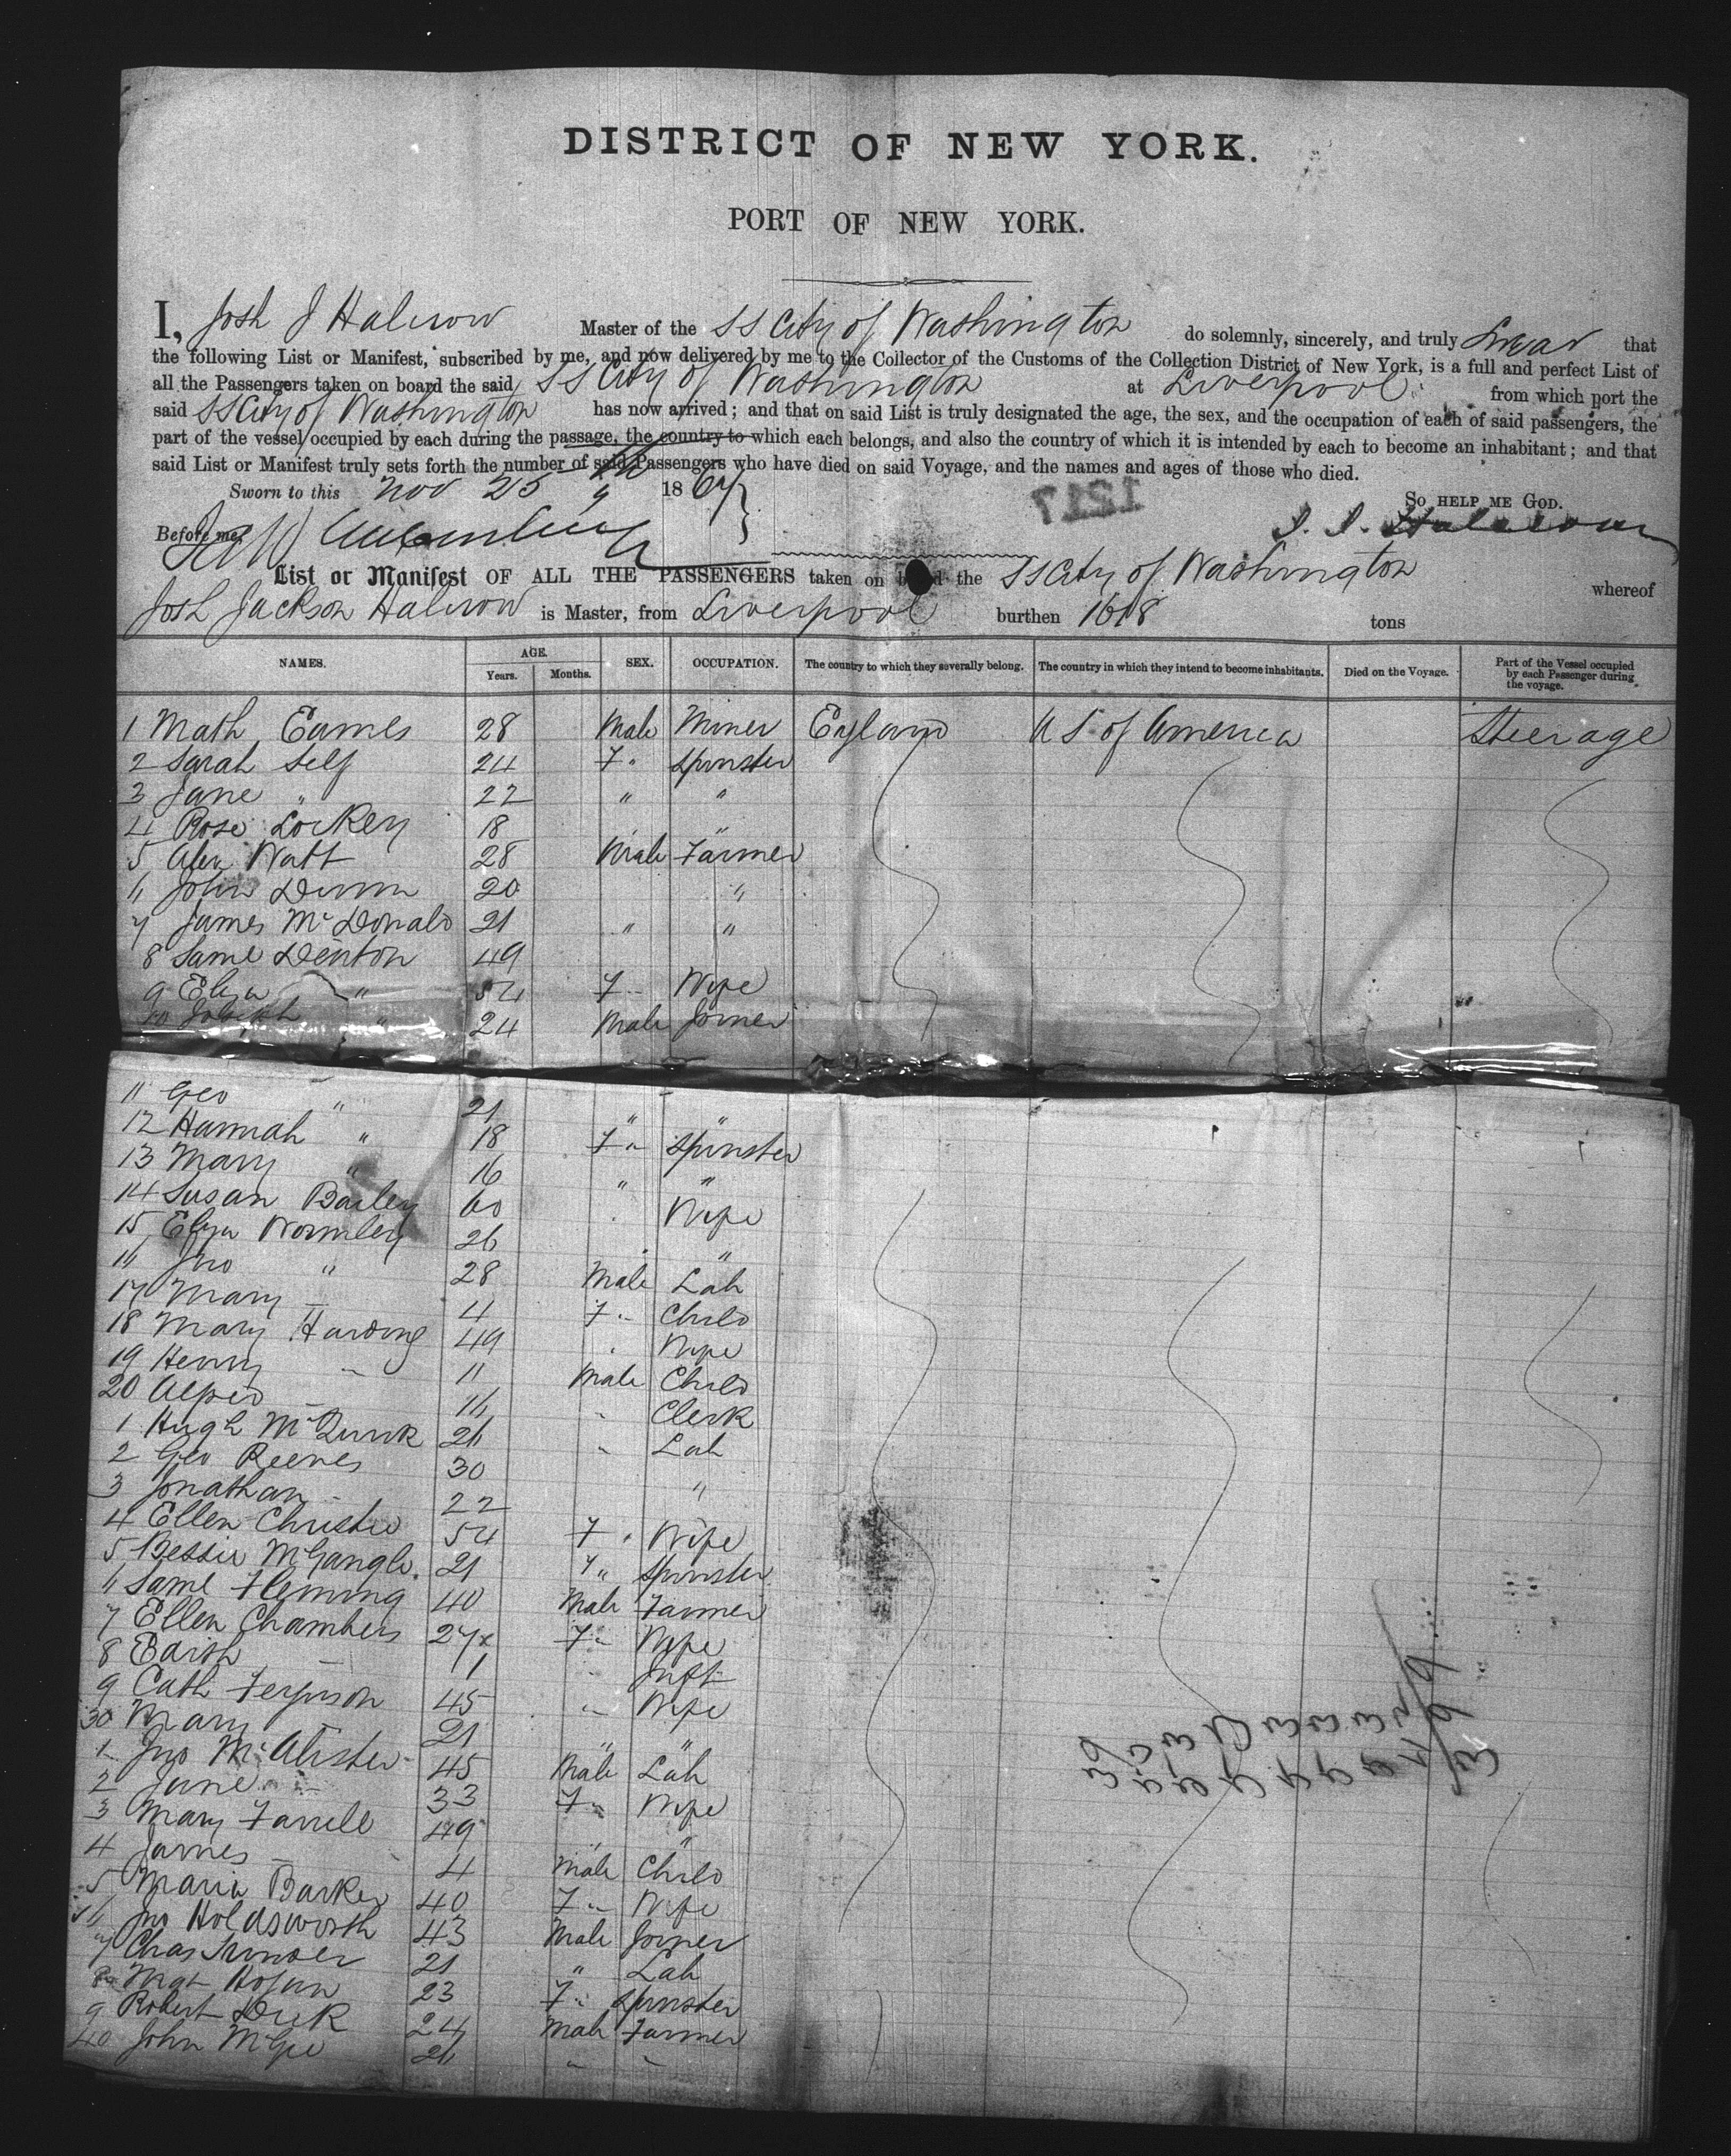 DISTRICT OF NEW YORK.
PORT OF NEW YORK.
I, Josh J Halcrow Master of the SS City of Washington do solemnly, sincerely, and truly Swear that
the following List or Manifest, subscribed by me, and now delivered by me to the Collector of the Customs of the Collection District of New York, is a full and perfect List of
all the Passengers taken on board the said SS City of Washington at Liverpool from which port the
said SS City of Washington has now arrived; and that on said List is truly designated the age, the sex, and the occupation of each of said passengers, the
part of the vessel occupied by each during the passage, the country to which each belongs, and also the country of which it is intended by each to become an inhabitant; and that
said List or Manifest truly sets forth the number of said Passengers who have died on said Voyage, and the names and ages of those who died.
Sworn to this Nov 25 1867
So help me God.
Before me J. J. Halcrow
List or Manifest OF ALL THE PASSENGERS taken on board the SS City of Washington whereof
Josh Jackson Halcrow is Master, from Liverpool burthen 1618 tons
NAMES. AGE. Years. Months. SEX. OCCUPATION. The country to which they severally belong. The country in which they intend to become inhabitants. Died on the Voyage. Part of the Vessel occupied by each Passenger during the voyage.
1 Math Eames 28 Male Miner England U S of America Steerage
2 Sarah Self 24 F " Spinster
3 Jane " 22 " "
4 Rose Lockey 18 " "
5 Alex Watt 28 Male Farmer
6 John Dunn 20 "
7 James McDonald 21 " "
8 Saml Denton 49
9 Eliza " 54 F " Wife
10 Joseph " 24 Male Joiner
11 Geo " 21 " "
12 Hannah " 18 F " Spinster
13 Mary " 16 " "
14 Susan Bailey 60 " Wife
15 Eliza Wormley 26 " "
16 Jno " 28 Male Lab
17 Mary 4 F " Child
18 Mary Harding 49 " Wife
19 Henry 11 Male Child
20 Alfred 16 " Clerk
1 Hugh McQuirk 26 " Lab
2 Geo Reeves 30
3 Jonathan 22 "
4 Ellen Christie 54 F " Wife
5 Bessie 21 F " Spinster
6 Saml Fleming 40 Male Farmer
7 Ellen Chambers 27 F " Wife
8 Edith 1 " Inft
9 Cath Ferguson 45 " Wife
30 Mary 21 " "
1 Jno McAlister 45 Male Lab
2 Jane 33 F " Wife
3 Mary Farrell 49 " "
4 James 4 Male Child
5 Maria Barker 40 F " Wife
6 Jno Holdsworth 43 Male Joiner
7 Chas 21 " Lab
8 Mgt Hogan 23 F " Spinster
9 Robert Dick 24 Male Farmer
40 John McGee 26 " "